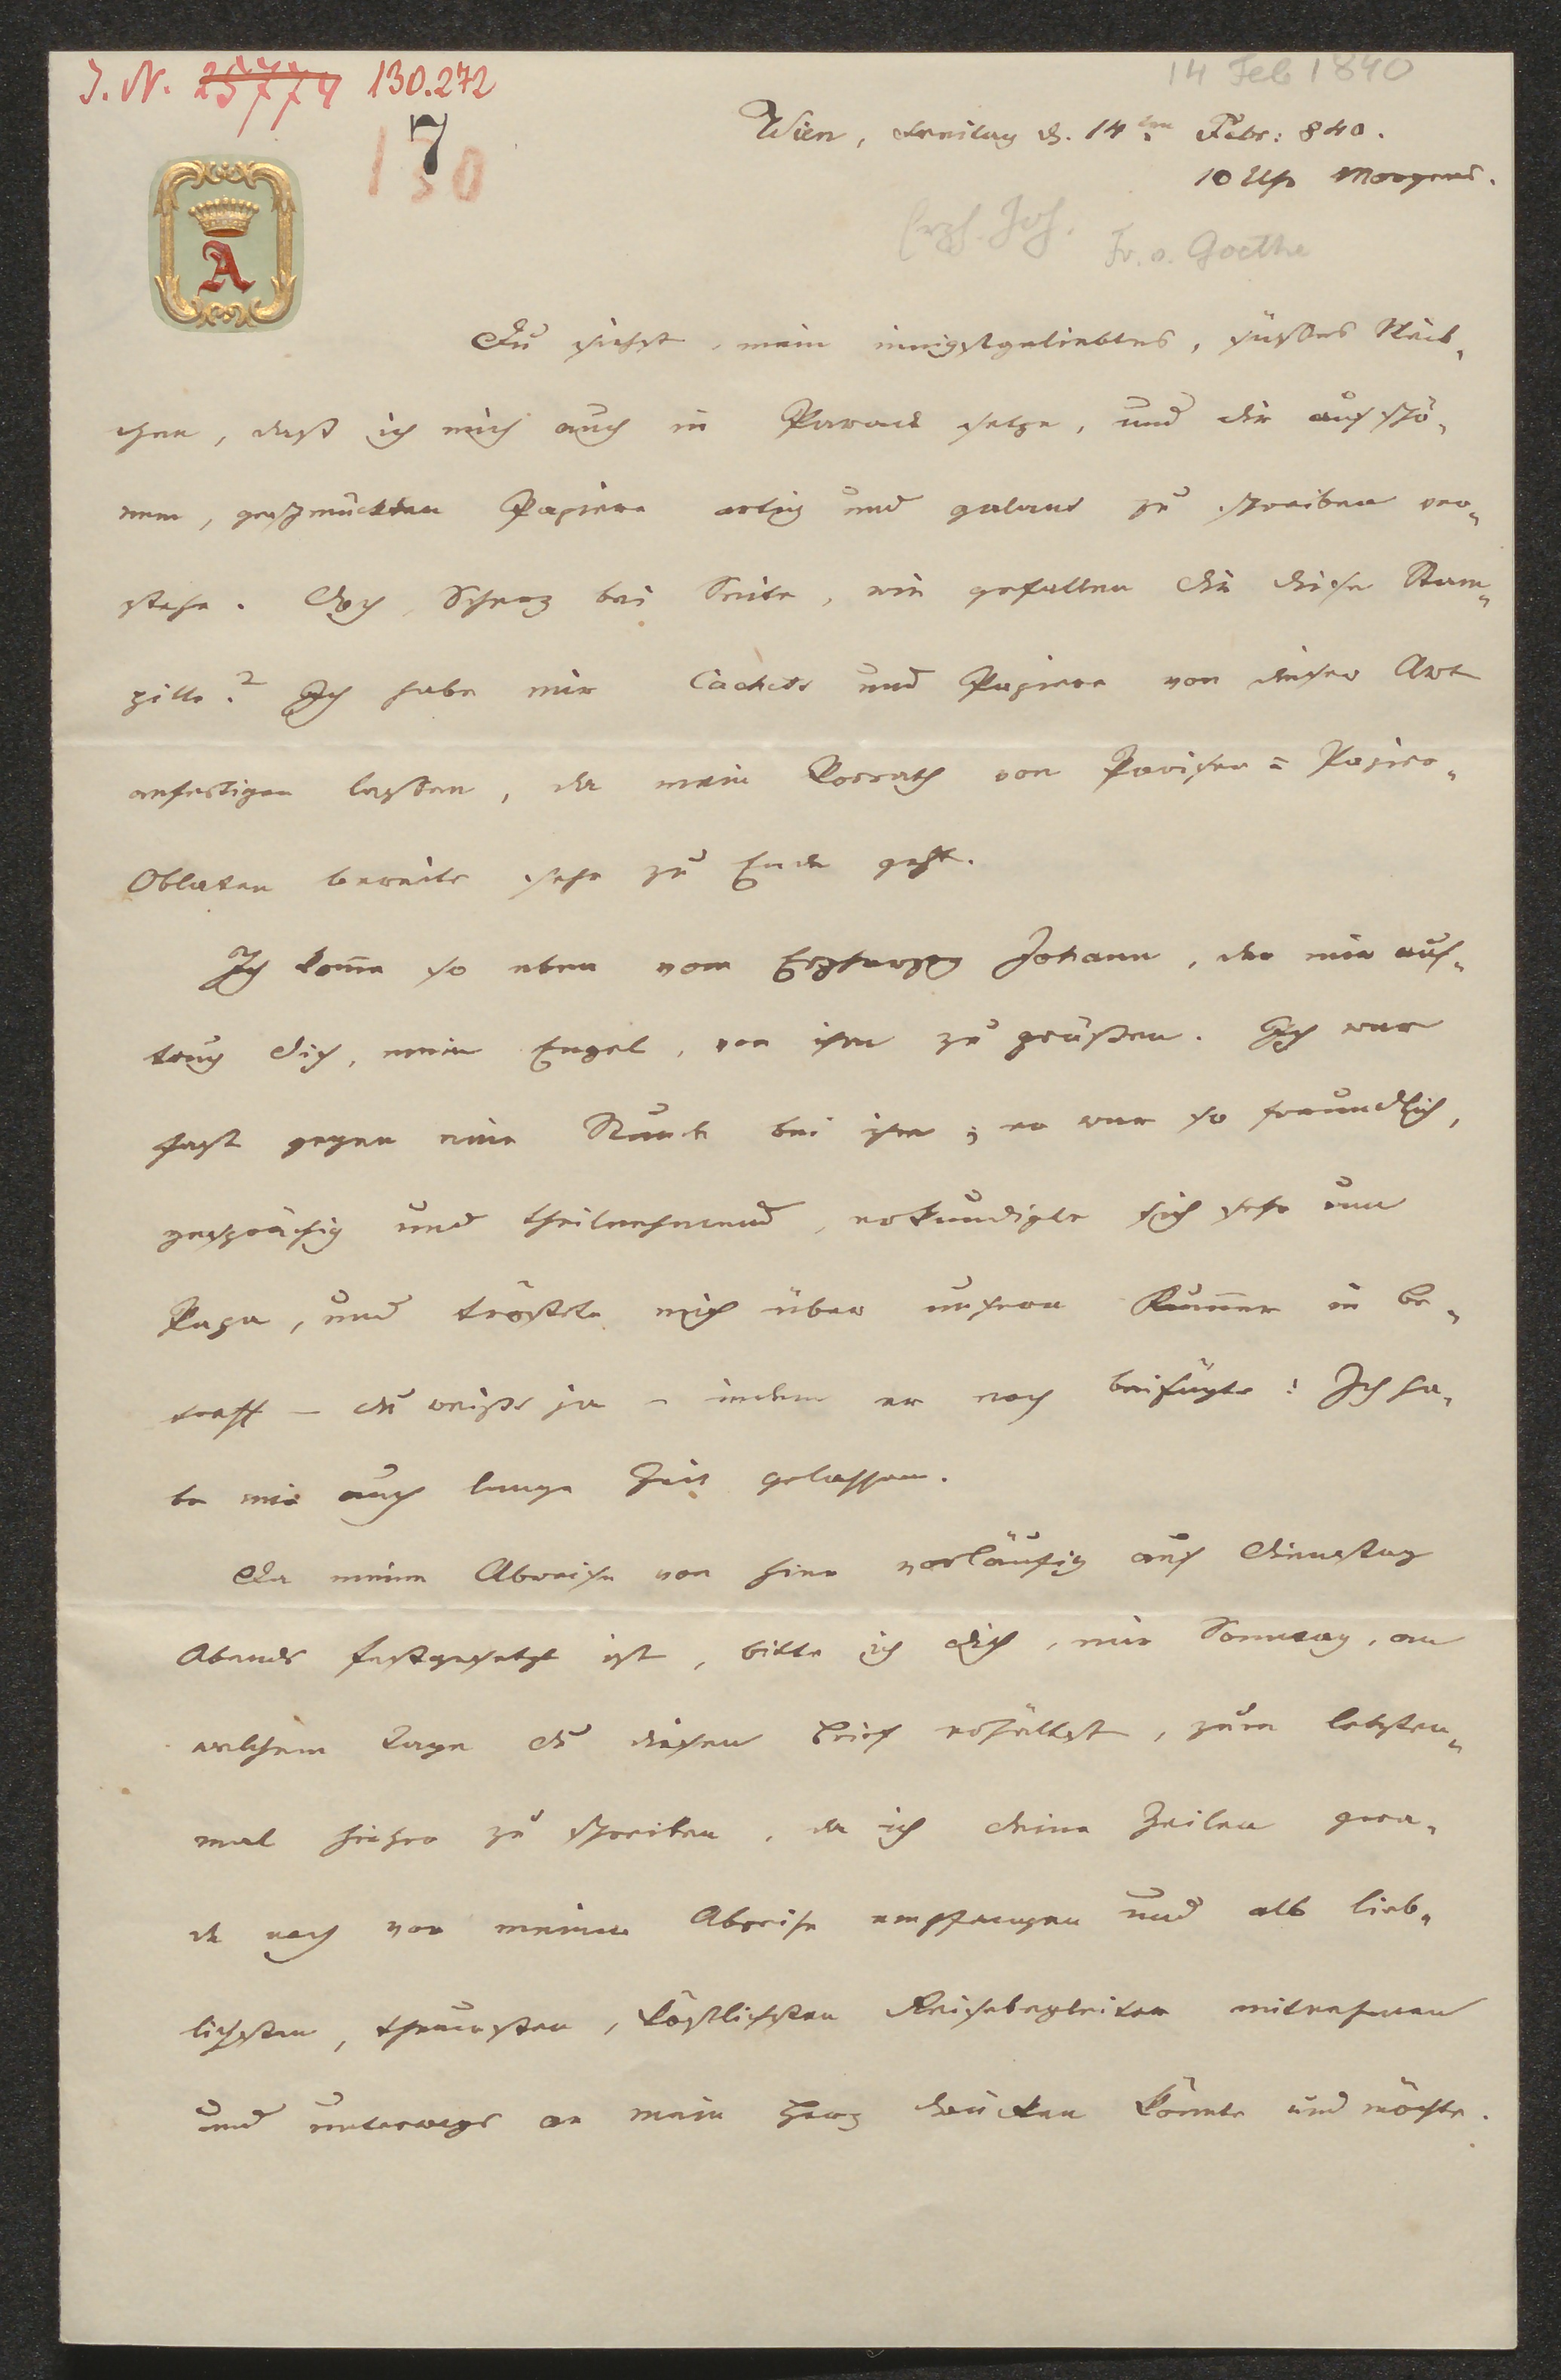 14 Feb 1840
J. N. 25774 130.272
7
130
Wien, Freitag d. 14ten Febr: 840.
10 Uhr Morgens.
Erzh. Joh. Fr. v. Goethe
A
Du siehst, mein innigstgeliebtes, süßes Mäd-
chen, daß ich mich auch in Parade setze, und dir auf schö-
nem, geschmückten Papiere artig und galant zu schreiben ver-
stehe. Doch Scherz bei Seite, wie gefallen dir diese Stam-
pille? Ich habe mir Cachets und Papiere von dieser Art
anfertigen lassen, da mein Vorrath von Pariser=Papier-
Oblaten bereits sehr zu Ende geht.
Ich kom̅e so eben vom Erzherzog Johann, der mir auf-
trug dich, mein Engel, von ihm zu grüßen. Ich war
fast gegen eine Stunde bei ihm; er war so freundlich,
gesprächig und theilnehmend, erkundigte sich sehr um
Papa, und tröstete mich über unsern Kum̅er in be-
treff – du weißt ja – indem er noch beifügte: Ich ha-
be mir auch lange Zeit gelassen.
Da meine Abreise von hier vorläufig auf Dienstag
Abends festgesetzt ist, bitte ich dich, mir Sonntag, an
welchem Tage du diesen Brief erhältst, zum letzten-
mal hieher zu schreiben, da ich deine Zeilen gera-
de noch vor meiner Abreise empfangen und als lieb-
lichsten, theuersten, köstlichsten Reisebegleiter mitnehmen
und unterwegs an mein Herz drücken könnte und möchte.